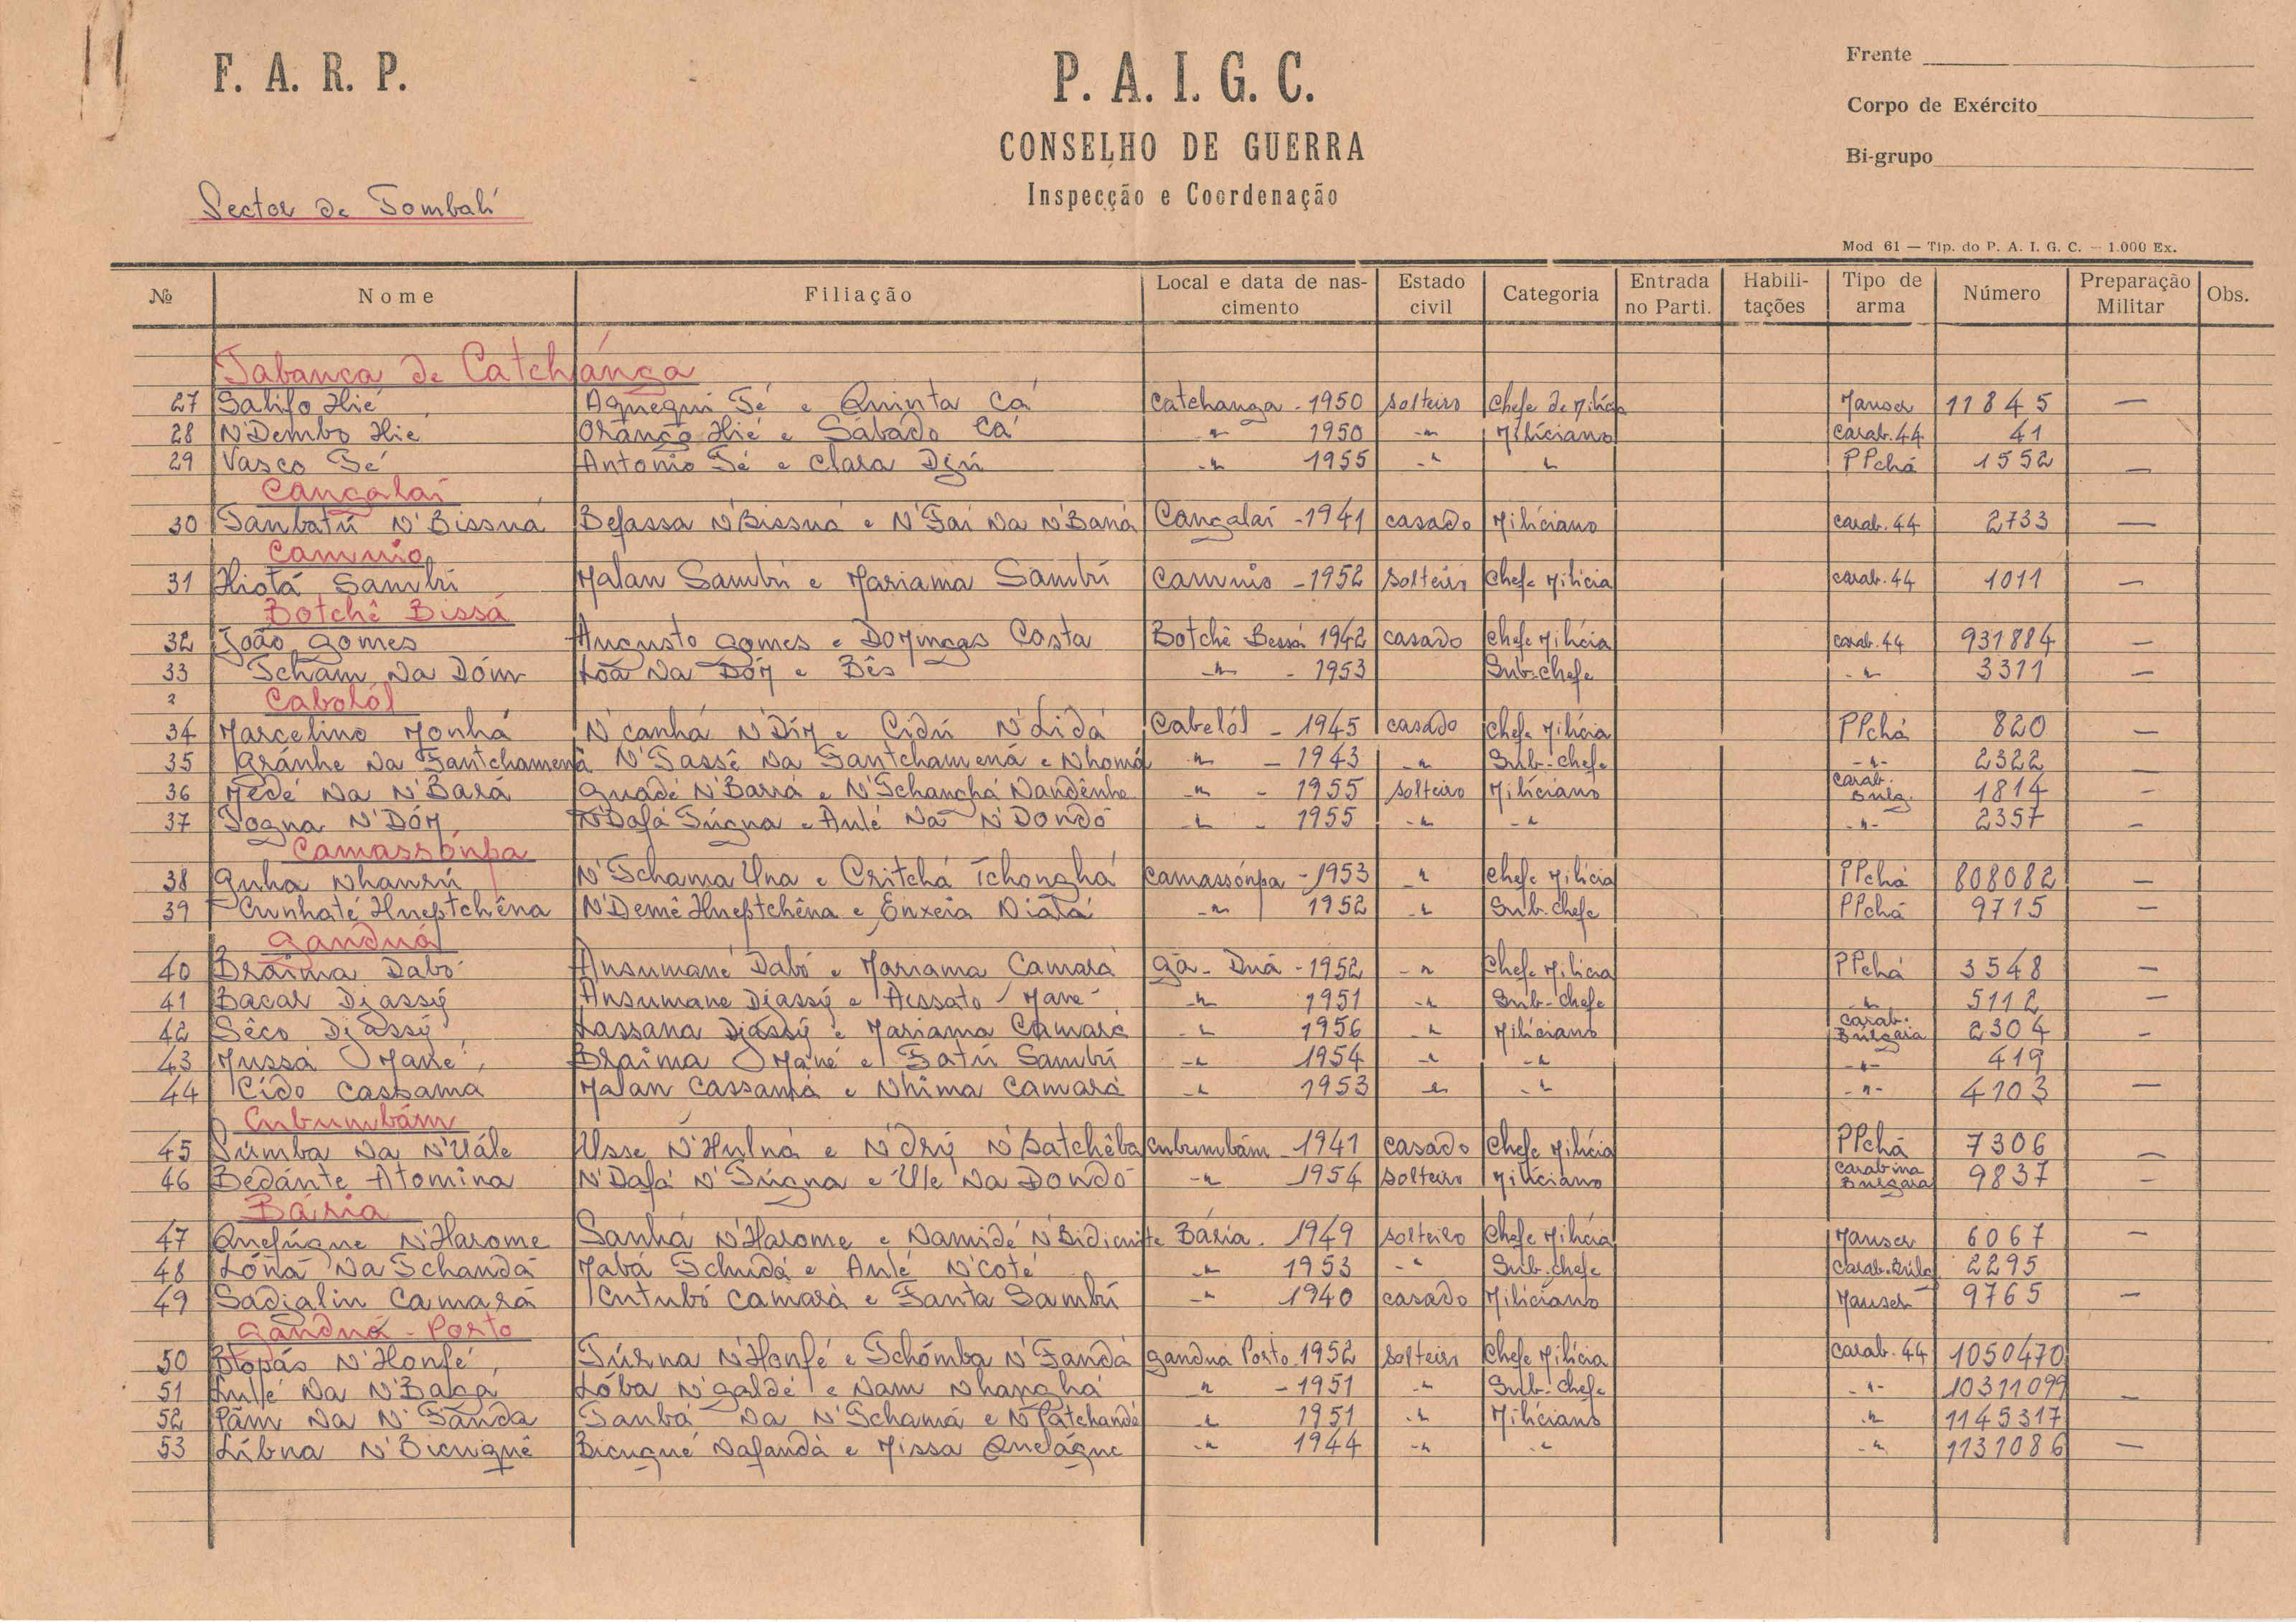 F. A. R. P.
P. A. I. G. C.
CONSELHO DE GUERRA
Inspecção e Coordenação
Frente
Corpo de Exército
Bi-grupo
Sector de Tombalí
Mod 61 — Tip. do P. A. I. G. C. — 1.000 Ex.
№ Nome Filiação Local e data de nascimento Estado civil Categoria Entrada no Parti. Habilitações Tipo de arma Número Preparação Militar Obs.
Tabanca de Catchánga
27 Salifo Hié Aguegui Té e Quinta Cá Catchanga - 1950 solteiro Chefe de Milícia Mauser 11845 —
28 N'Dembo Hié Orânço Hié e Sábado Cá -"- 1950 -"- Miliciano Carab. 44 41
29 Vasco Té Antonio Té e Clara Djú -"- 1955 -"- " PPchá 1552 —
Cangalaí
30 Tanbatú N'Bissuá Befassa N'Bissuá e N'Fai Na N'Baná Cangalaí - 1941 casado Miliciano carab. 44 2733 —
Camuio
31 Hiotá Sambú Malan Sambú e Mariama Sambú Camuio - 1952 solteiro Chefe Milícia carab. 44 1011 —
Botchê Bissá
32 João Gomes Augusto Gomes e Domingas Costa Botchê Bessá 1942 casado Chefe Milícia carab. 44 931884 —
33 Tcham Na Dóm Loá Na Dóm e Bês -"- - 1953 Sub-chefe -"- 3311 —
Cabolól
34 Marcelino Monhá N'canhá N'Dím e Cidú N'Lidá Cabelól - 1945 casado Chefe Milícia PPchá 820 —
35 Gránhe Na Tantchamená N'Tassê Na Tantchamená e Nhomá " - 1943 -"- Sub-chefe -"- 2322 —
36 Medé Na N'Bará Guadé N'Barrá e N'Tchanghá Nandênhe -"- - 1955 solteiro Miliciano Carab. Bulg. 1814 —
37 Togna N'Dóm N'Dafá Túgna e Aulé Na N'Dondó -"- - 1955 -"- -"- -"- 2357 —
Camassónpa
38 Gnha Nhanrú N'Tchama Una e Critchá Tchonghá Camassónpa - 1953 -"- Chefe Milícia PPchá 808082 —
39 Cunhaté Hueptchêna N'Demê Hueptchêna e Enxeia Niatá -"- 1952 -"- Sub-chefe PPchá 9715 —
Ganduá
40 Braima Dabó Ansumané Dabó e Mariama Camará Gã-Duá - 1952 -"- Chefe Milícia PPchá 3548 —
41 Bacar Djassý Ansumane Djassý e Aissato Mané -"- 1951 -"- Sub-chefe -"- 5112 —
42 Sêco Djassý Lassana Djassý e Mariama Camará -"- 1956 -"- Miliciano Carab. Búlgara 2304 —
43 Mussá Mané Braima Mané e Fatú Sambú -"- 1954 -"- -"- -"- 419
44 Cído Cassama Malan Cassamá e Nhima Camará -"- 1953 -"- -"- -"- 4103 —
Cubumbám
45 Súmba Na N'Uále Usse N'Hulná e N'drý N'Batchêba Cubumbám 1941 casado Chefe Milícia PPchá 7306 —
46 Bedánte Atomina N'Dafá N'Túgna e Ule Na Dondó -"- 1954 solteiro Miliciano Carabina Bulgara 9837 —
Bária
47 Quefúgne N'Harome Sanhá N'Harome e Namidé N'Bidiente Bária. 1949 solteiro Chefe Milícia Mauser 6067 —
48 Lóná Na Tchandá Mabá Tchudá e Aulé N'Coté -"- 1953 -"- Sub-chefe Carab. Bulg 2295
49 Sadjalin Camará Cutubó Camará e Fanta Sambú -"- 1940 casado Miliciano Mauser 9765 —
Ganduá - Porto
50 Btopás N'Honfé Túrna N'Honfé e Tchómba N'Fanda Ganduá Porto 1952 solteiro Chefe Milícia Carab. 44 1050470
51 Lulé Na N'Bagá Lóba N'galdé e Nam Nhanghá " - 1951 -"- Sub-chefe -"- 10311099 —
52 Pãm Na N'Fanda Tanbá Na N'Tchamá e N'Patchandé -"- 1951 -"- Miliciano -"- 1145317 —
53 Líbna N'Bicuquê Bicugué Nafandá e Missa Quelágne -"- 1944 -"- -"- -"- 1131086 —